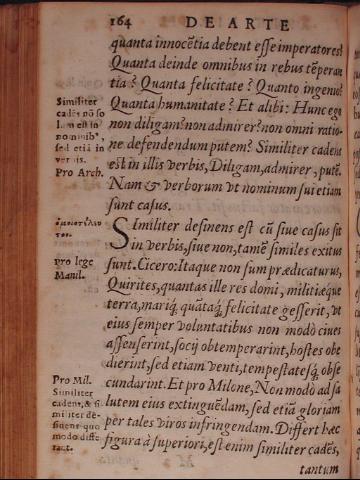 164 DE ARTE
quanta innocẽtia debent esse imperatores?
Quanta deinde omnibus in rebus tẽperan
tia? Quanta felicitate? Quanto ingenio?
Quanta humanitate? Et alibi: Hunc ego
non diligam? non admirer? non omni ratio-
ne defendendum putem? Similiter cadens
est in illis verbis, Diligam, admirer, putẽ.
Nam & verborum vt nominum sui etiam
sunt casus.
Similiter desinens est cũ siue casus sit
in verbis, siue non, tamẽ similes exitus
sunt. Cicero: Itaque non sum prædicaturus,
Quirites, quantas ille res domi, militiæque
terra, mariq́; quãtaq́; felicitate gesserit, vt
eius semper voluntatibus non modò ciues
assenserint, socij obtemperarint, hostes obe
dierint, sed etiam venti, tempestatesq́; obse
cundarint. Et pro Milone, Non modò ad sa
lutem eius extinguẽdam, sed etiã gloriam
per tales viros infringendam. Differt hæc
figura à superiori, est enim similiter cadẽs,
tantum
Similiter
cadẽs nõ so
lum est in
nominib',
sed etiã in
verbis.
Pro Arch.
pro lege
Manil.
Pro Mil.
Similiter
cadens, & si
militer de-
sinens quo
modo diffe
rant.